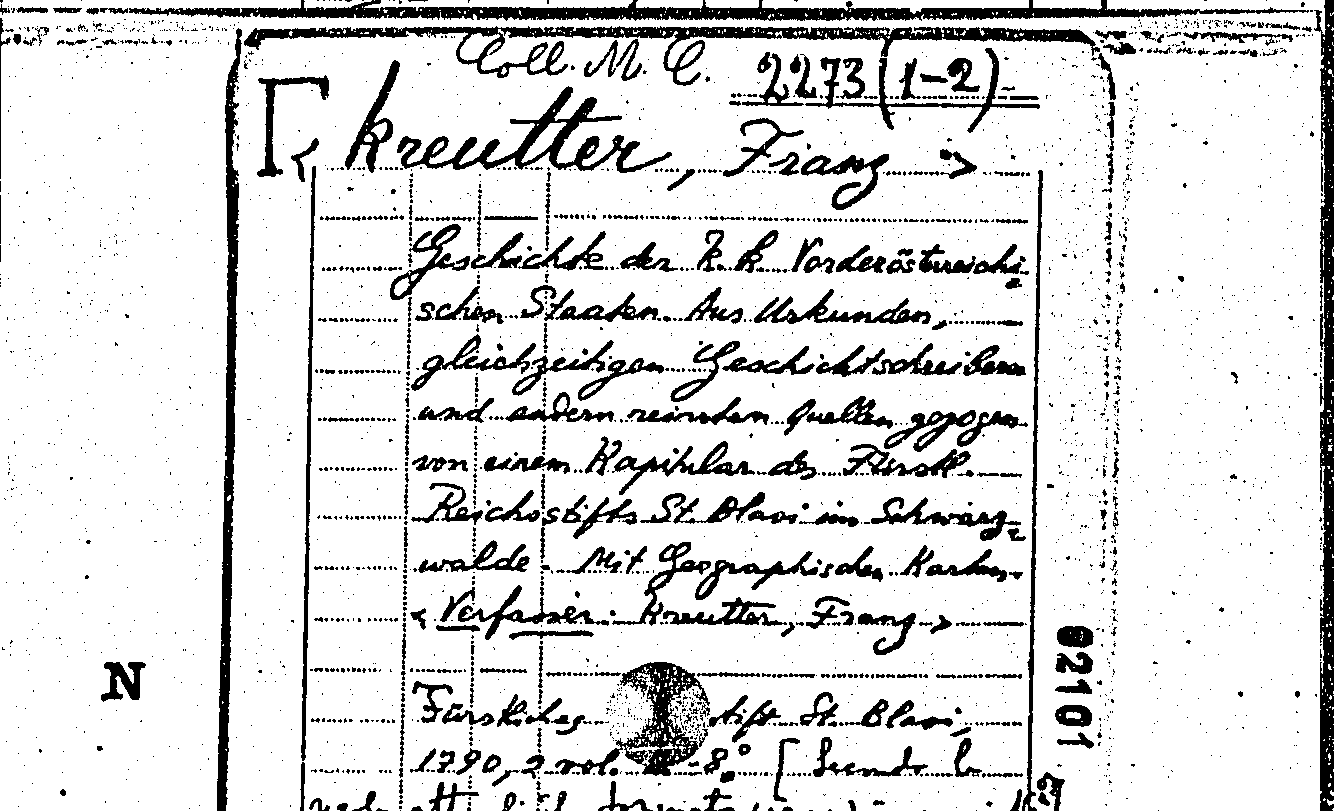 Coll. M. C. 2273 (1-2)
< Kreutter, Franz >
Geschichte der K. K. Vorderöstereichi-
schen Staaten. Aus Urkunden,
gleichzeitigen Geschichtschreibern
und andern reinsten Quellen gezogen
von einem Kapitular des Fürstl.
Reichsstifts St. Blasi im Schwarz-
walde. Mit Geographischen Karten.
< Verfasser: Kreutter, Franz >
Fürstliches stift St. Blasi,
1790, 2 vol. -8.°
N
02101